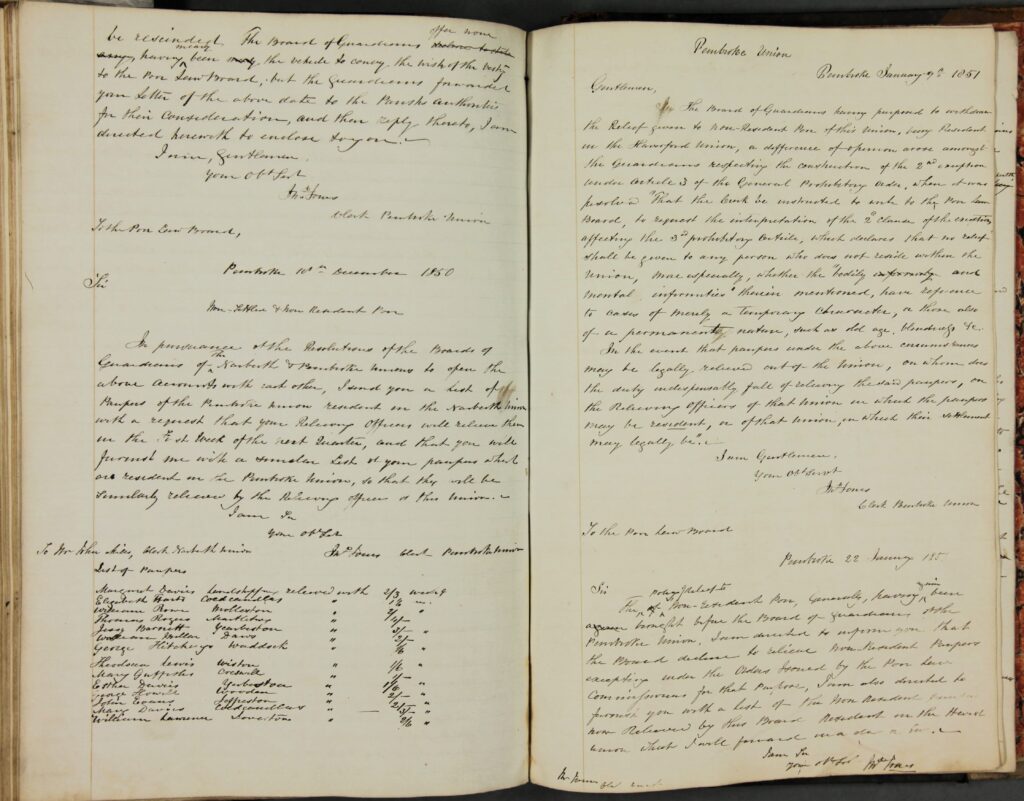 be rescinded. The Board of Guardians offer none
having been merely the vehicle to convey the wish of the Vestry
to the Poor Law Board, but the Guardians forwarded
your letter of the above date to the Parish Authorities
for their consideration, and their reply thereto, I am
directed herewith to enclose to you.
I am, Gentlemen
Your Obt Servt
Jno Jones
Clerk Pembroke Union
To the Poor Law Board,
Pembroke 10th December 1850
Sir
Non-Settled & Non Resident Poor
In pursuance of the Resolutions of the Boards of
Guardians of the Narberth & Pembroke Unions to open the
above Accounts with each other, I send you a List of
Paupers of the Pembroke Union resident in the Narberth Union
with a request that your Relieving Officers will relieve them
in the 1st Week of the next Quarter, and that you will
furnish me with a similar List of your paupers which
are resident in the Pembroke Union, so that they will be
similarly relieved by the Relieving Officers of this Union.
I am Sir
Your Obt Servt
To Mr John Miles, Clerk Narberth Union Jno Jones Clerk Pembroke Union
List of Paupers
Margaret Davies relieved with 2/3 weekly
Elizabeth Coedcanllas " 1/6 "
William Rowe Molleston "
Thomas Rogers "
Jesse Barnett Yerbeston " 3/- "
William "
George Hitchings "
Theodosia Lewis Wiston " 1/6 "
Mary Griffiths " 1/- "
Esther Davies Yerbeston " 1/6 "
George Howell " 2/- "
John Evans Jeffreston "
Mary Davies Coedcanllas "
William Lawrence Loveston " 2/6 "
Pembroke Union
Pembroke January 9th 1851
Gentlemen,
The Board of Guardians having purposed to withdraw
the Relief given to Non-Resident Poor of this Union, being Resident
in the Haverford Union, a difference of opinion arose amongst
the Guardians respecting the construction of the 2nd exception
under Article 3 of the General Prohibitory Order, when it was
resolved "That the Clerk be instructed to write to the Poor Law
Board, to request the interpretation of the 2d clause of the exceptions
affecting the 3rd prohibitory Article, which declares that no relief
shall be given to any person who does not reside within the
Union, more especially, whether the "bodily and
mental infirmities" therein mentioned, have reference
to cases of merely a temporary character, or those also
of a permanent nature, such as old age, blindness &c.
In the event that paupers under the above circumstances
may be legally relieved out of the Union, on whom does
the duty indispensably fall of relieving the said paupers, on
the Relieving Officers of that Union in which the paupers
may be resident, or of that Union, in which their Settlement
may legally be".
I am Gentlemen
Your Obt Servt
Jno Jones
Clerk Pembroke Union
To the Poor Law Board
Pembroke 22 January 185
Sir
The of Non-Resident Poor, Generally, having again been
brought before the Board of Guardians of the
Pembroke Union, I am directed to inform you that
the Board decline to relieve Non-Resident Paupers
excepting under the Orders Issued by the Poor Law
Commissioners for that Purpose, I am also directed to
furnish you with a List of the Non Resident
now Relieved by this Board Resident in the
Union which I will forward in a day or two.
I am Sir
Your Obt Servt Jno Jones